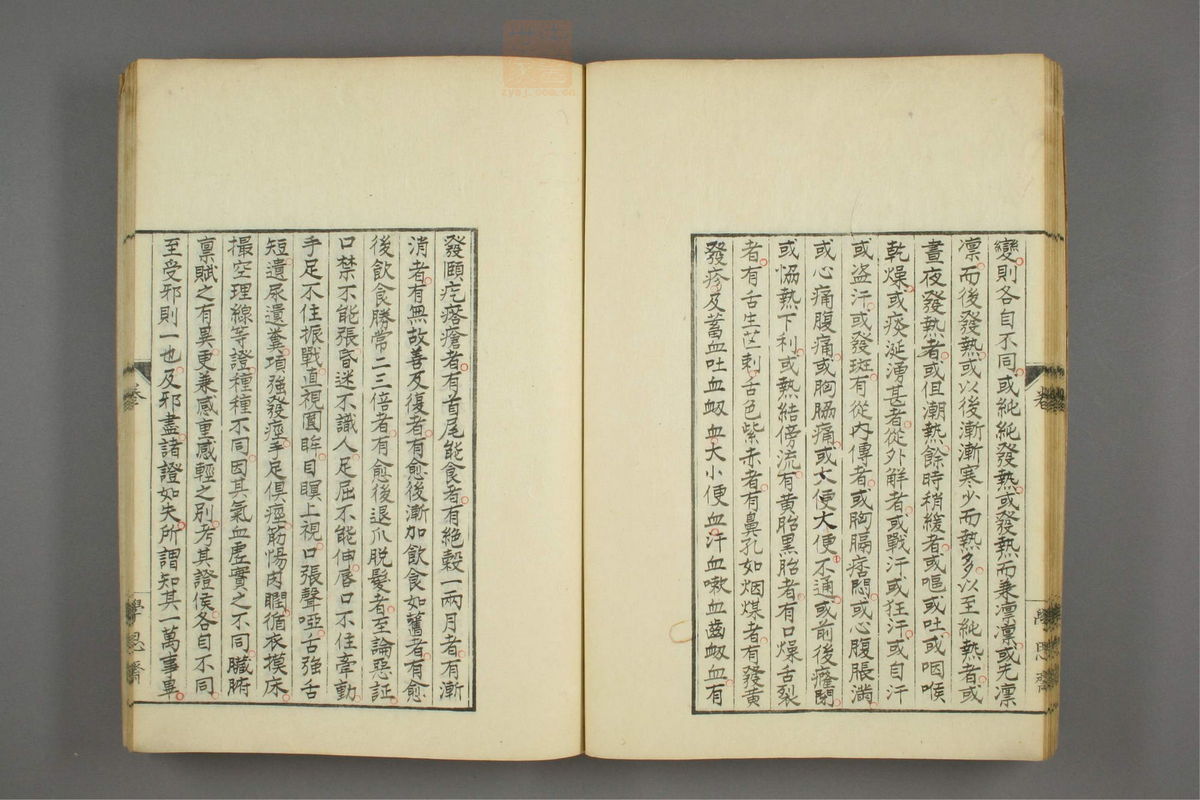 變則各自不同或純純發熱或發熱而兼凛凛或先凛
凛而後發熱或以後漸漸寒少而熱多以至純熱者或
晝夜發熱者或但潮熱餘時稍緩者或嘔或吐或咽喉
乾燥或痰涎湧甚者從外解者或戰汗或狂汗或自汗
或盗汗或發斑有從内傳者或胸膈痞悶或心腹脹滿
或心痛腹痛或胸脇痛或大便大便不通或前後癃閉
或恊熱下利或熱結傍流有黄胎黒胎者有口燥舌裂
者有舌生芒刺舌色紫赤者有鼻孔如烟煤者有發黄
發疹及蓄血吐血衂血大小便血汗血嗽血齒衂血有
發頤疙瘩瘡者有首尾能食者有絶穀一兩月者有漸
消者有無故善及復者有愈後漸加飲食如舊者有愈
後飲食勝常二三倍者有愈後退爪脱髮者至論惡証
口禁不能張昏迷不識人足屈不能伸唇口不住牽動
手足不住振戰直視圓眸目瞑上視口張聲啞舌強舌
短遺尿遺糞項強發痙手足倶痙筋惕肉瞤循衣摸床
撮空理線等證種種不同因其氣血虚實之不同臟腑
禀賦之有異更兼感重感輕之別考其證候各自不同
至受邪則一也及邪盡諸證如失所謂知其一萬事畢
卷
學思齋